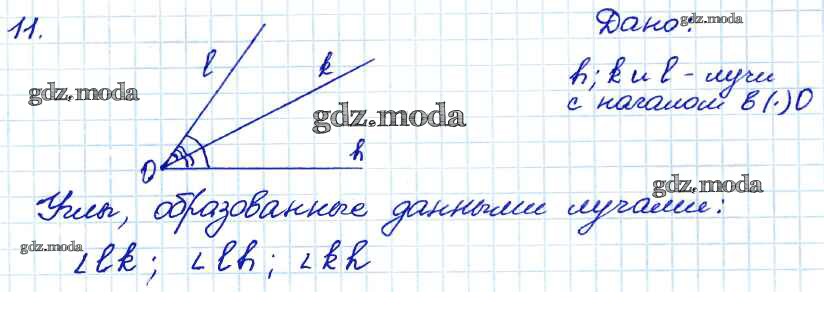 11.
Дано:
l
k
h; k и l - лучи
gdz.moda
с началом в (·) O
gdz.moda
h
O
Углы, образованные данными лучами:
∠lk; ∠lh; ∠kh
gdz.moda
gdz.moda
gdz.moda